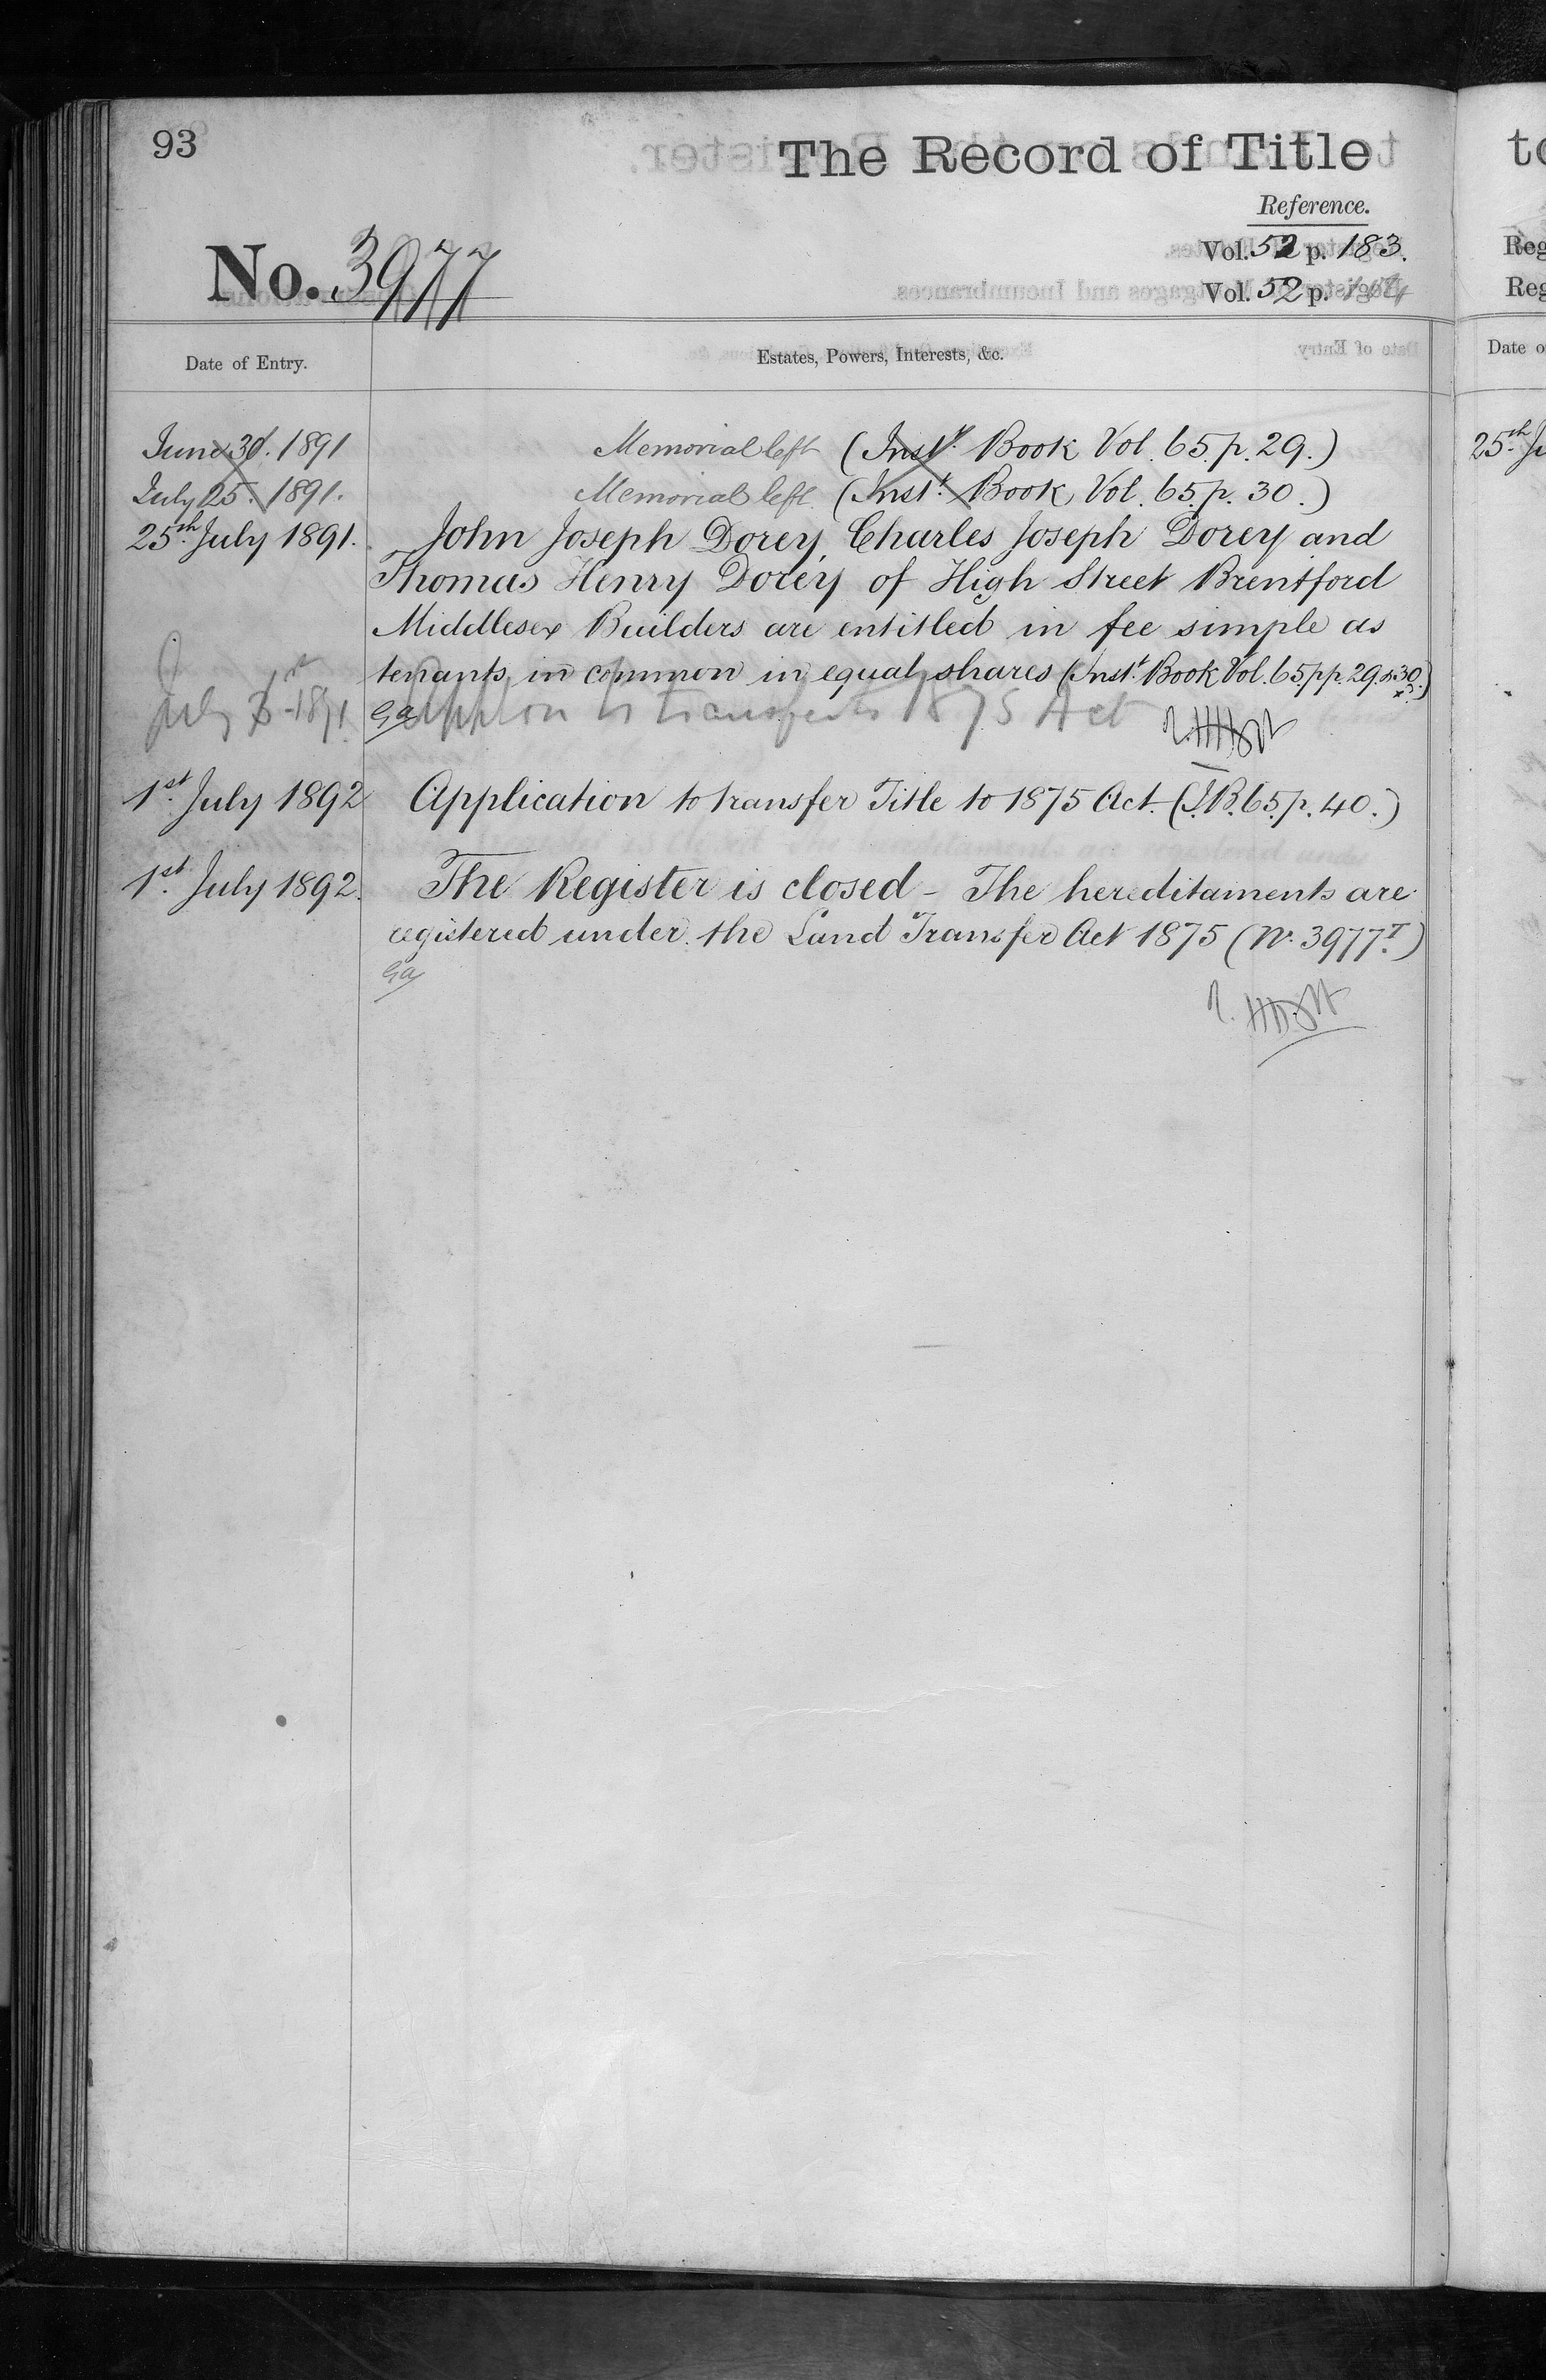 93
The Record of Title
Reference.
No. 3977
Vol. 52 p. 183.
Vol. 52 p.
Date of Entry.
Estates, Powers, Interests, &c.
June 30. 1891 Memorial left (Instt. Book Vol. 65. p. 29.)
July 25. 1891. Memorial left (Instt. Book Vol. 65. p. 30.)
25th July 1891. John Joseph Dorey, Charles Joseph Dorey and
Thomas Henry Dorey of High Street Brentford
Middlesex Builders are entitled in fee simple as
tenants in common in equal shares (Instt. Book Vol. 65. pp. 29. & 30.)
July 1891. Ga Applon to transfer to 1875 Act
1st July 1892 Application to transfer Title to 1875 Act. (I.B. 65. p. 40.)
1st July 1892. The Register is closed – The hereditaments are
registered under the Land Transfer Act 1875 (No. 3977T.)
Ga
to
Reg
Reg
Date o
25th Ju